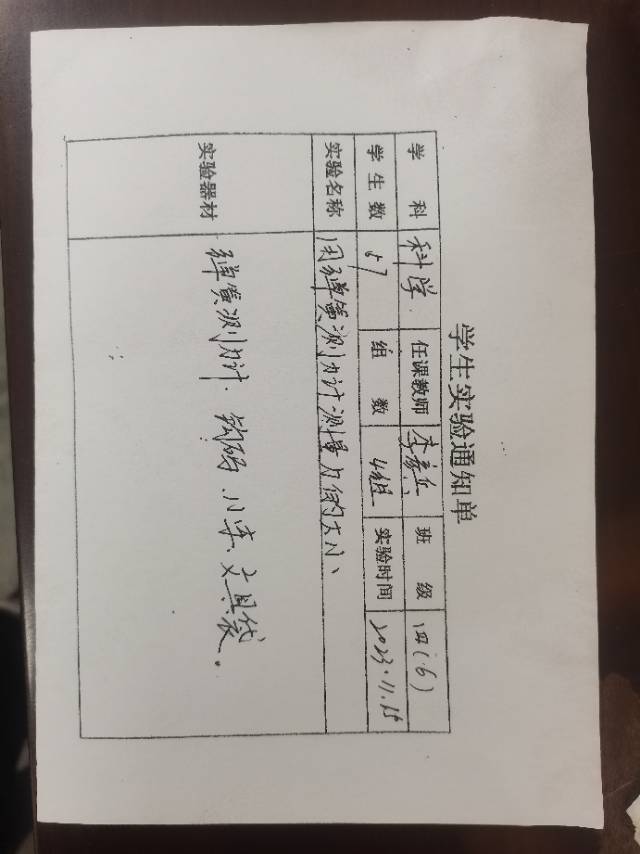 学生实验通知单
学 科 科学 任课教师 李 班 级 四(6)
学生数 57 组 数 4组 实验时间 2023.11.15
实验名称 用弹簧测力计测量力的大小、
实验器材 弹簧测力计、钩码、小车、文具袋。